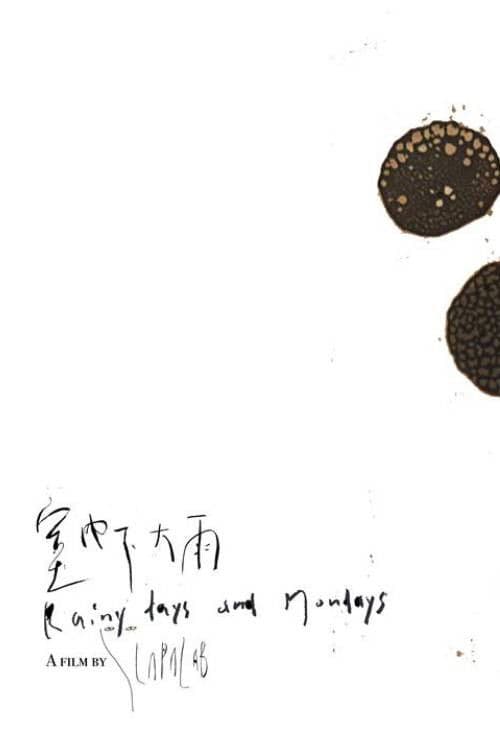 室内下大雨
Rainy days and Mondays
A FILM BY